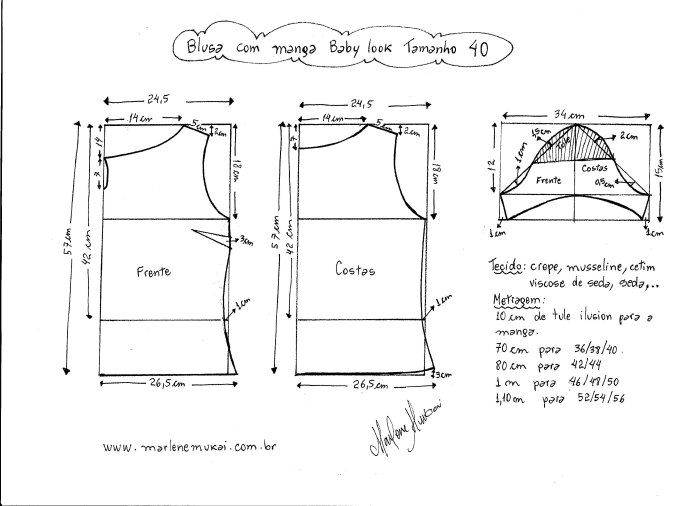 Blusa com manga Baby look Tamanho 40
24,5
14cm
5cm
2cm
14
7
18cm
57cm
42cm
3cm
Frente
1cm
26,5cm
24,5
14cm
5cm
2cm
7
18cm
57cm
42cm
Costas
1cm
3cm
26,5cm
34cm
1,5cm
2cm
Tule
1cm
12
Costas
Frente
0,5cm
15cm
1cm
1cm
Tecido: crepe, musseline, cetim
viscose de seda, seda,..
Metragem:
10 cm de tule ilusion para a
manga.
70 cm para 36/38/40.
80 cm para 42/44
1 m para 46/48/50
1,10m para 52/54/56
Marlene Mukai
www.marlenemukai.com.br